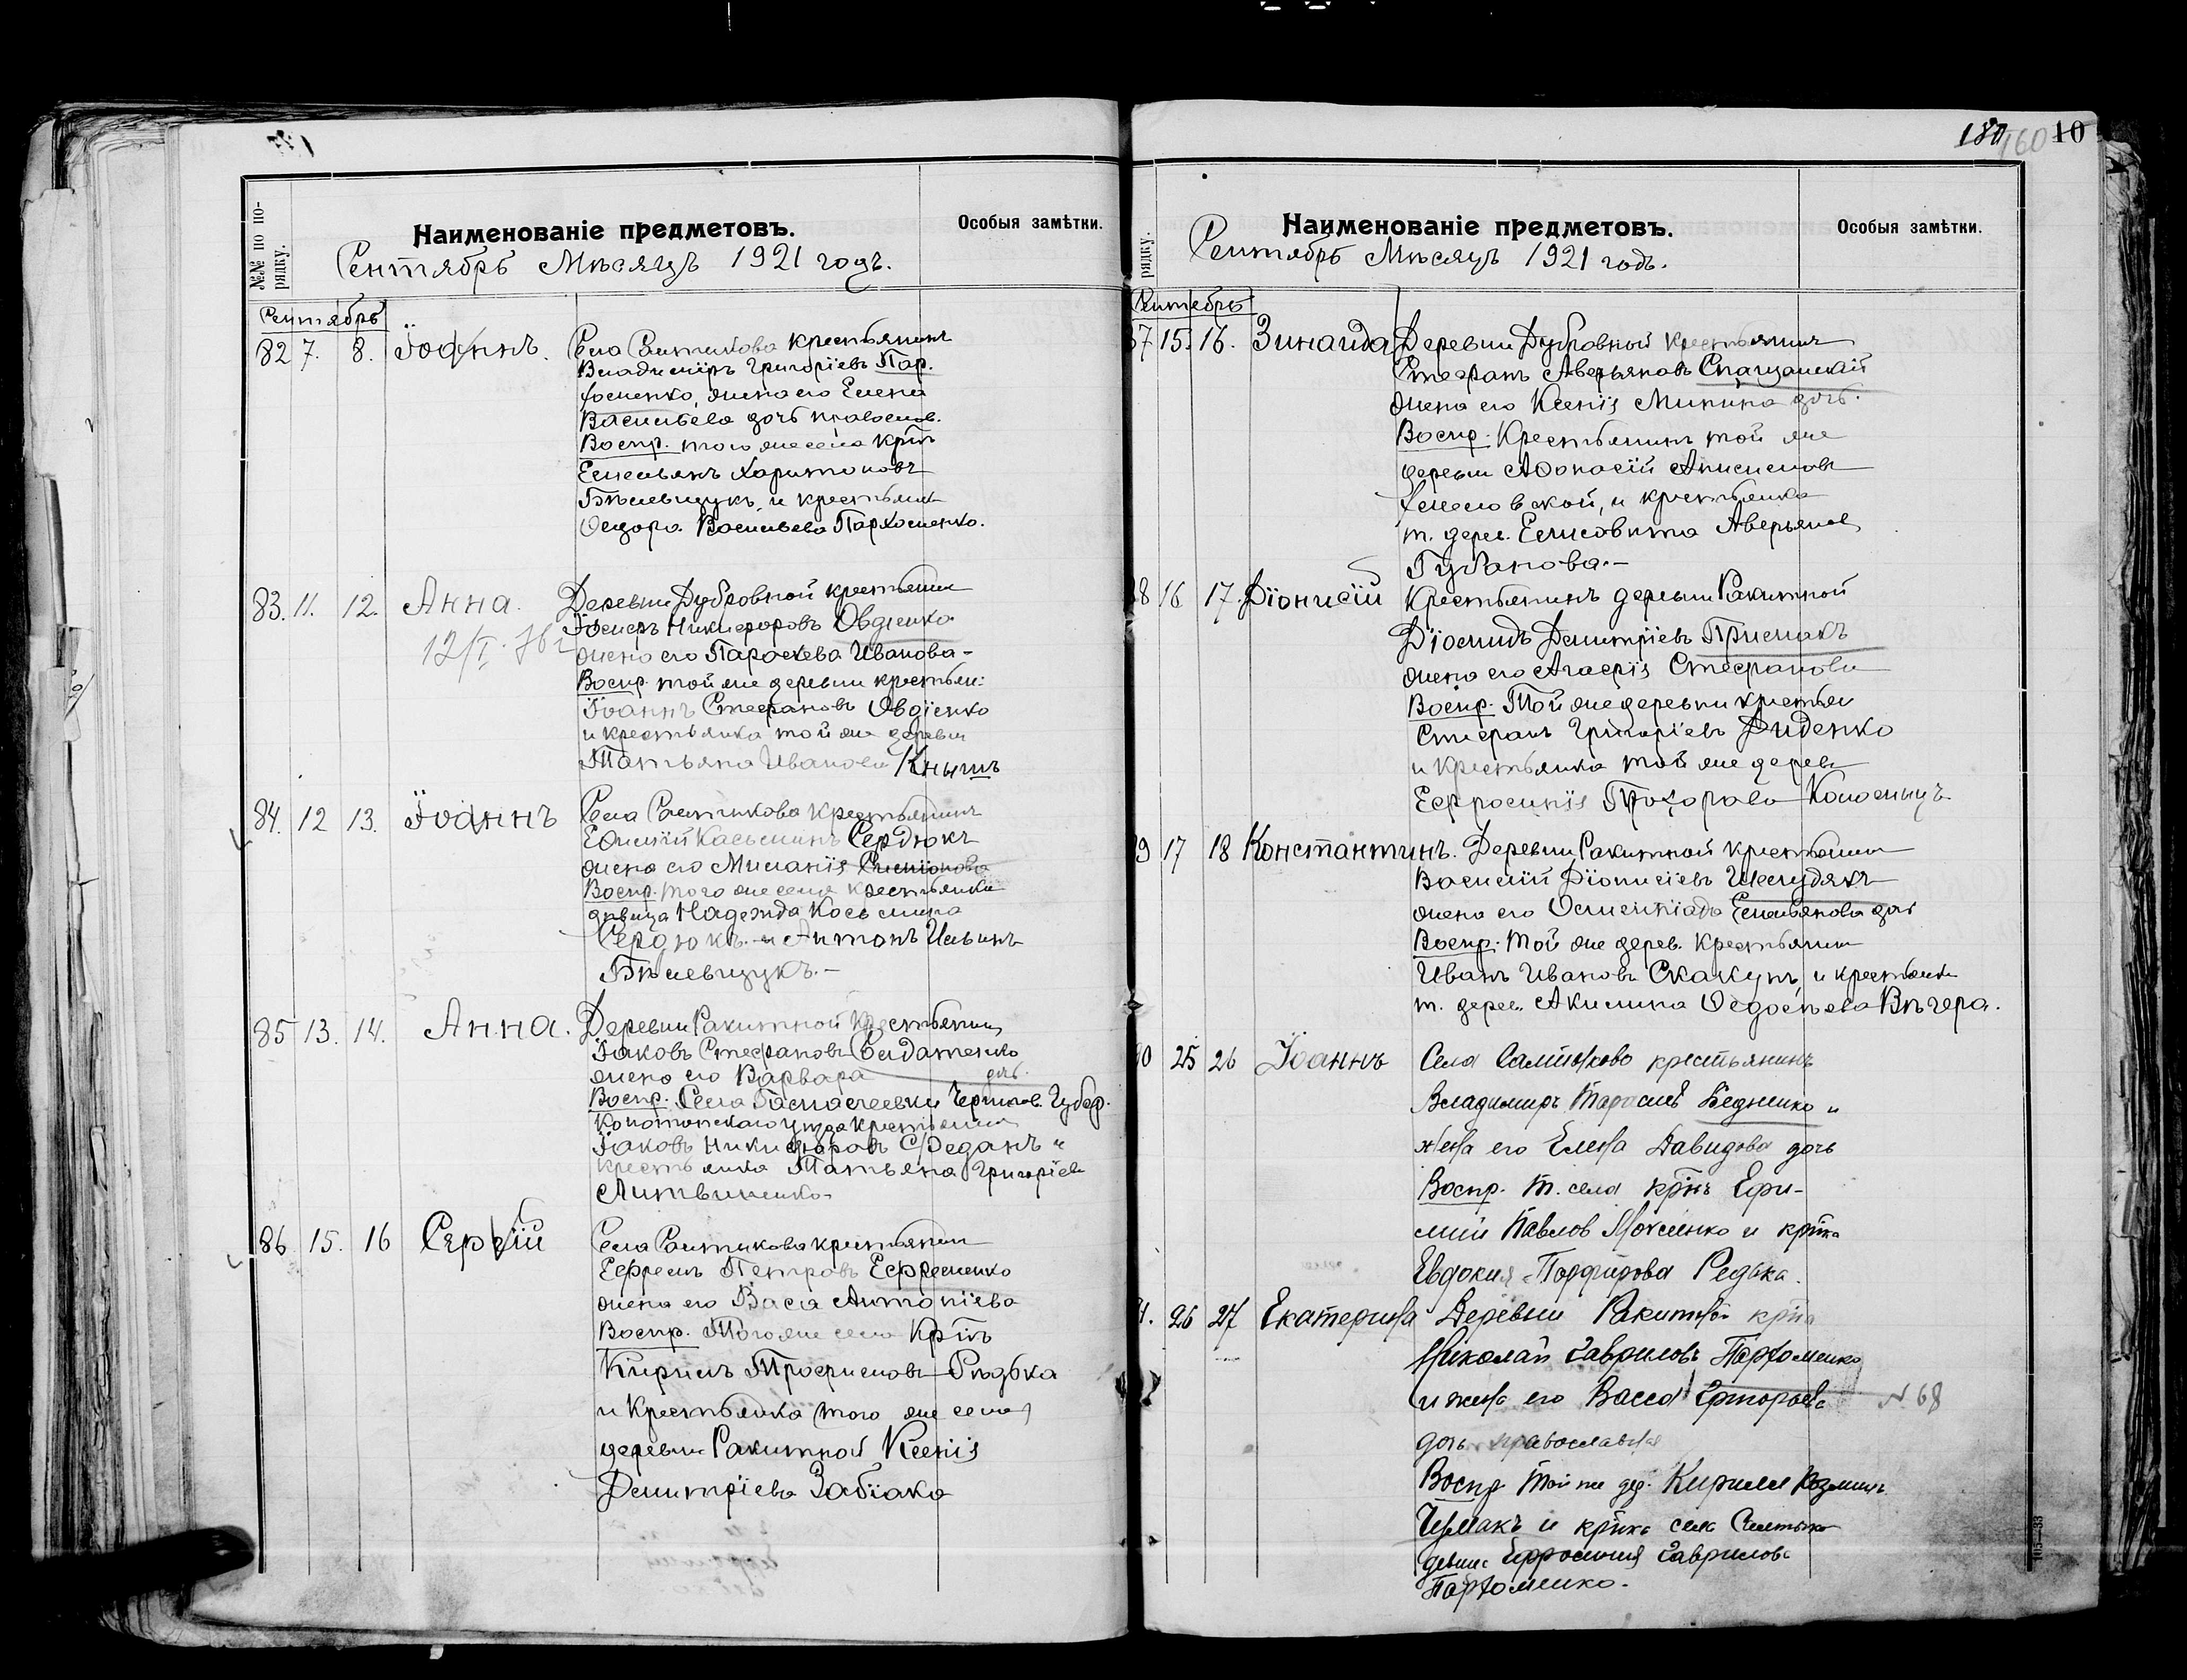 №№ по порядку.
Наименованіе предметовъ.
Особыя замѣтки.
Сентябрь Мѣсяцъ 1921 годъ.
Сентябрь
82 7. 8. Іоаннъ. Села Салтикова крестьянинъ
Владиміръ Григоріевъ Пар.
хоменко, жена его Елена
Васильева дочь православ.
Воспр. того же села крт҃нъ
Емельянъ Харитоновъ
Бѣлевщукъ, и крестьянк
Ѳеодора Васильева Пархоменко.
83. 11. 12. Анна. Деревни Дубровной крестьянин
12/I
Іосифъ Никифоровъ Овдіенко
жена его Параскева Иванова-
Воспр. той же деревни крестьян:
Іоаннъ Стефановъ Овдіенко
и крестьянка той же деревни
Татьяна Иванова Кнышъ
84. 12 13. Іоаннъ Села Салтикова крестьянинъ
Еѳимій Касьминъ Сердюкъ
жена его Миланія Симіонова
Воспр. того же села крестьянка
дѣвица Надежда Косьмина
Сердюкъ и Антонъ Ильинъ
Бѣлевщукъ.-
85 13. 14. Анна. Деревни Ракитной крестьянин
Іаковъ Стефановъ
жена его Варвара дочь.
Воспр. Села Чернигов. Губер.
Конотопскаго уѣзда крестьянин
Іаковъ Никифоровъ и
крестьянка Татьяна Григоріева
Литвиненко-
86. 15. 16 Сергій Села Салтикова крестьянин
Ефремъ Петровъ Ефременко
жена его Васса Антоніева
Воспр. Того же села Крт҃нъ
Кирилъ Трофимовъ Рѣдька
и Крестьянка того же села
деревни Ракитной Ксенія
Димитріева Забіака
180 160 10
рядку.
Наименованіе предметовъ.
Особыя замѣтки.
Сентябрь Мѣсяцъ 1921 годъ.
Сентябрь
87 15. 16. Зинаида Деревни Дубровной крестьянин
Стефанъ Аверьяновъ Спащанскій
жена его Ксенія Минина дочь.
Воспр. Крестьянинъ той же
деревни Аѳонасій Анисимовъ
и крестьянка
т. дерев. Елисовита Аверьянов
Губанова.-
88 16 17. Діонисій Крестьянинъ деревни Ракитной
Діомидъ Димитріевъ Примакъ
жена его Агафія Стефанова
Воспр. Той же деревни крестьян
Стефанъ Григоріевъ Диденко
и крестьянка той же дерев
Ефросинія Прохорова
89 17 18 Константинъ. Деревни Ракитной крестьянин
Василій Діонисіевъ Шелудякъ
жена его Олимпіада Емельянова доч
Воспр. Той же дерев. Крестьянин
Иванъ Ивановъ Скакунъ, и крестьянк
т. дерев. Акилина Ѳедосѣева Вѣчера.
90 25 26 Іоаннъ Села Салтыково крестьянинъ
Владимиръ Тарасіевъ Бедненко и
жена его Елена Давидова дочь
Воспр. т. села кр҃нъ Ефи-
мий Павлов Мокиенко и кр҃нка
Евдокия Порфирова Редька.
91. 26 27 Екатерина Деревни Ракитной кр҃нъ
Николай Гаврилов Пархоменко
и жена его Васса Григорьева
N 68
дочь православная
Воспр той же дер. Кирилл Козмин
Чумакъ и кр҃нка села Салтыко
девица Ефросиния Гаврилова
Пархоменко.
105-33